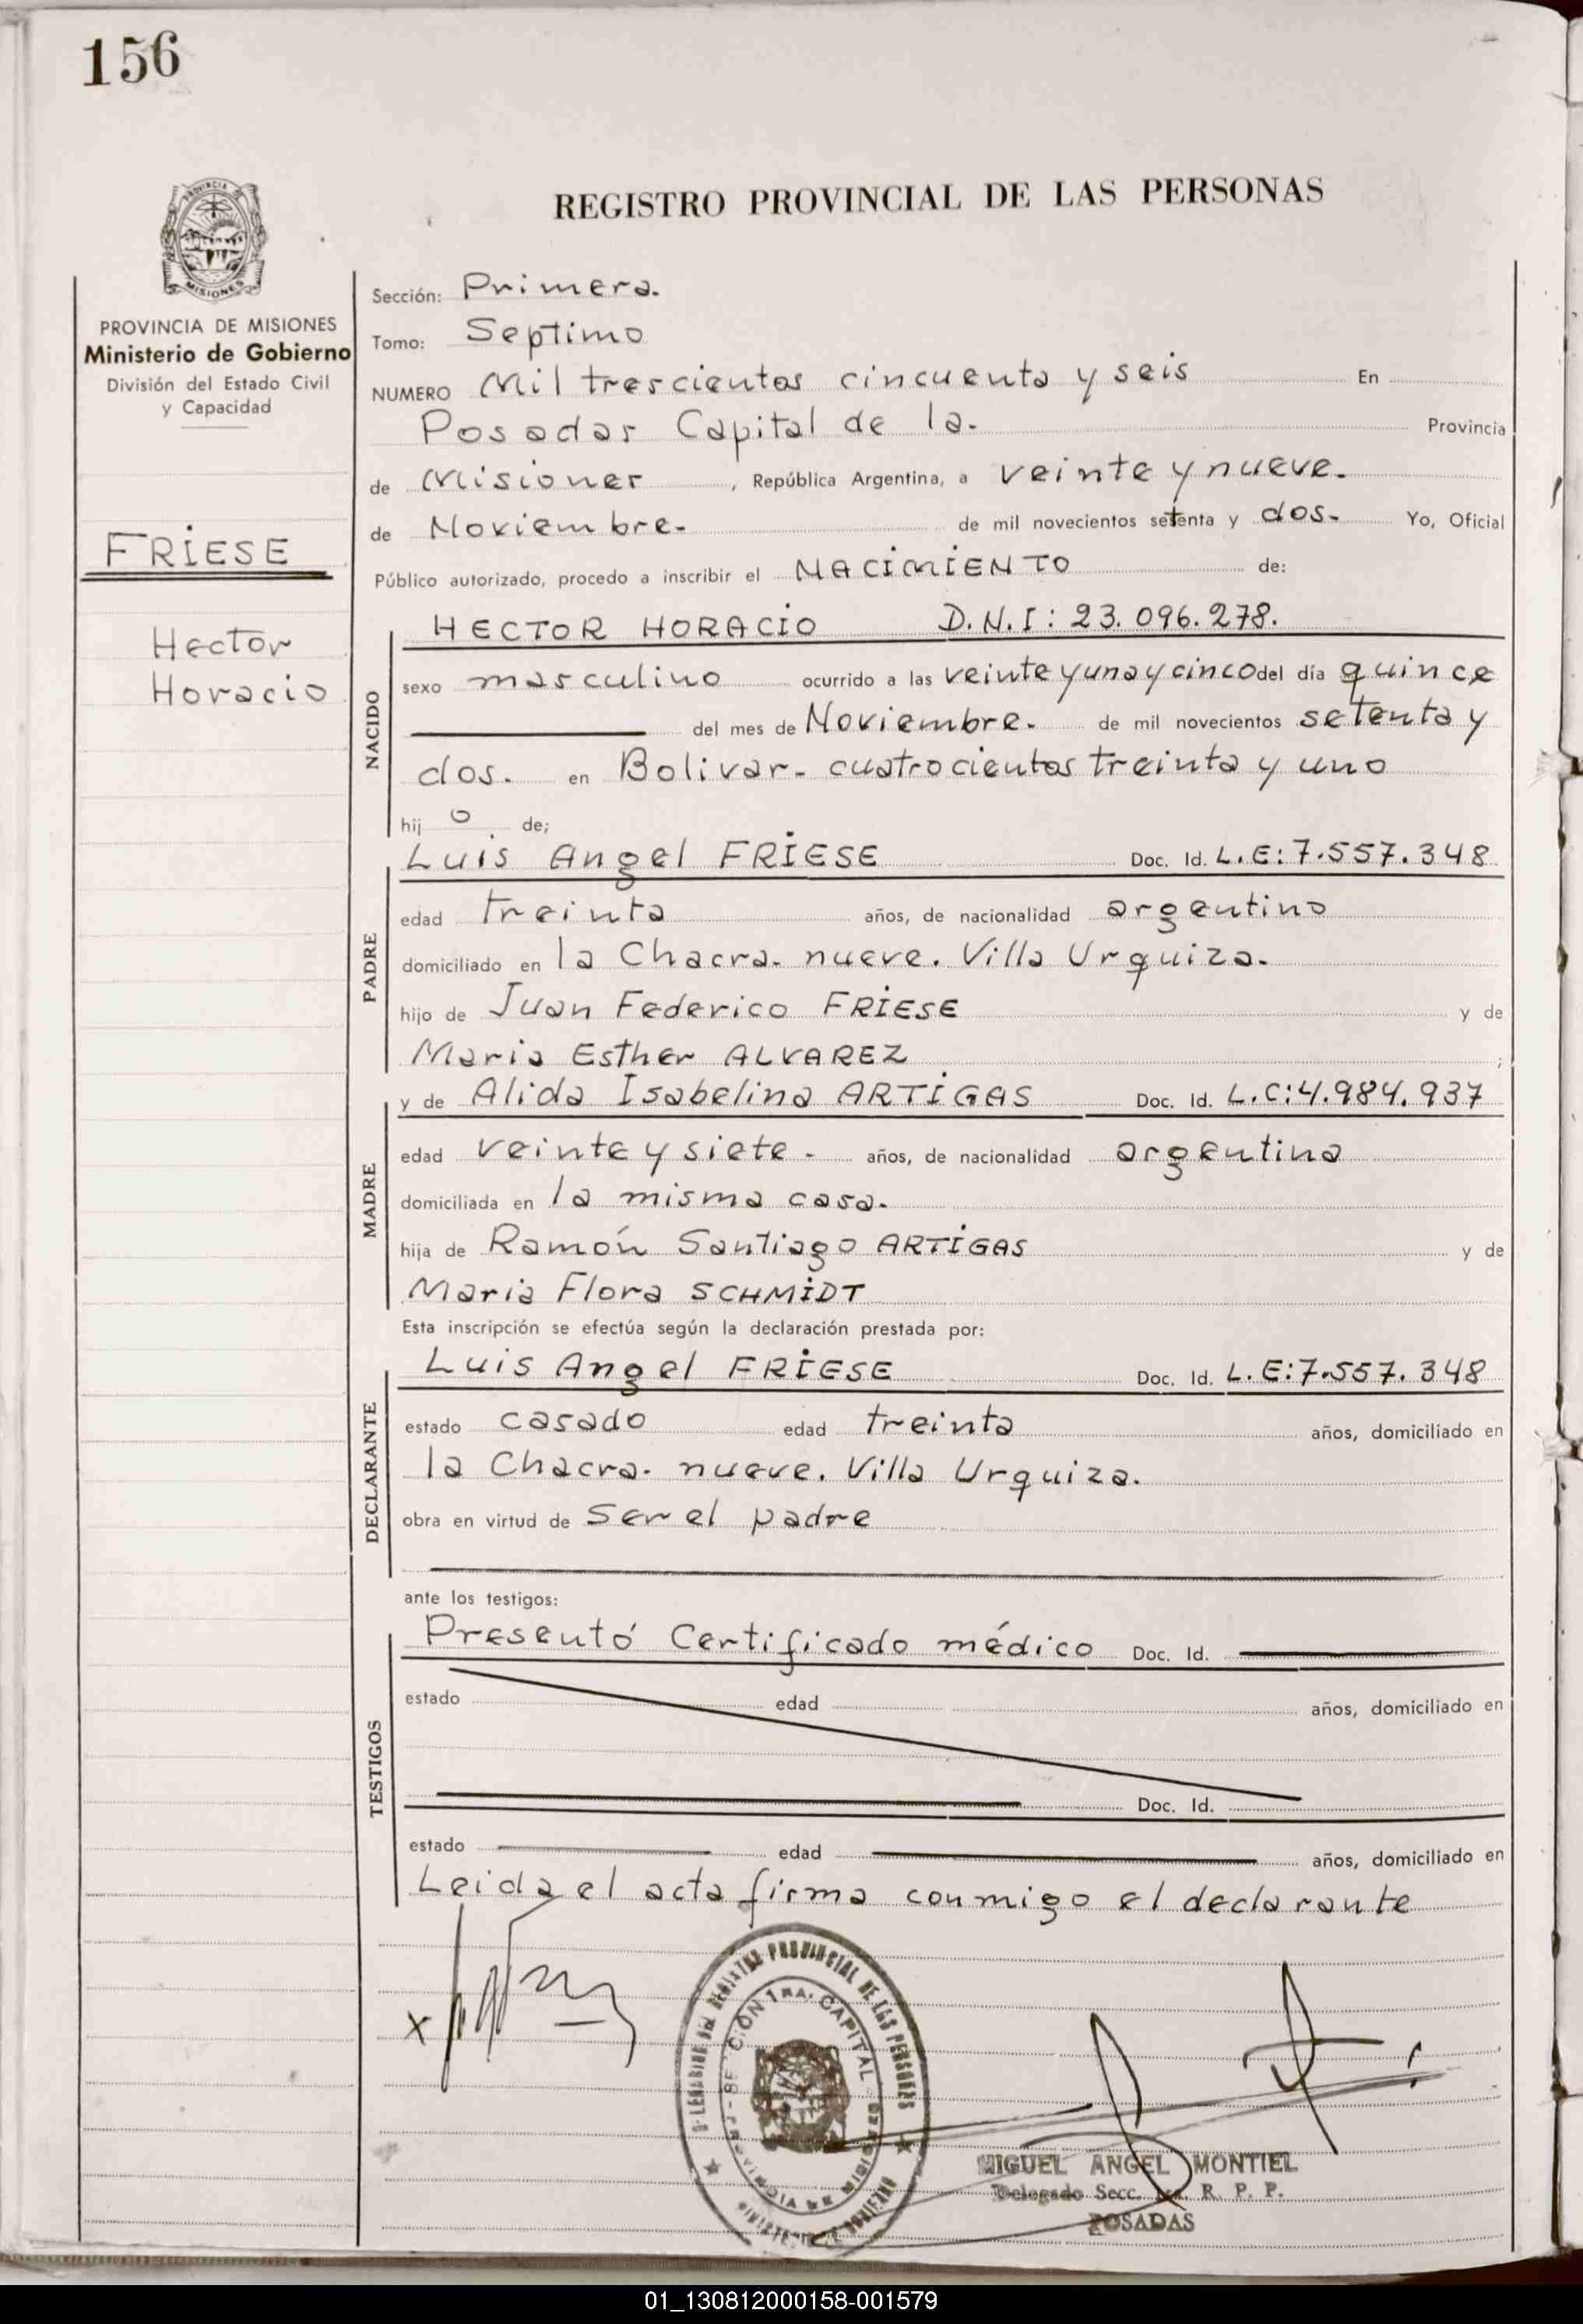 156
PROVINCIA DE MISIONES
Ministerio de Gobierno
División del Estado Civil
y Capacidad
FRIESE
Hector
Horacio
REGISTRO PROVINCIAL DE LAS PERSONAS
Sección: Primera.
Tomo: Septimo
NUMERO Mil trescientos cincuenta y seis En
Posadas Capital de la. Provincia
de Misiones , República Argentina, a veinte y nueve.
de Noviembre. de mil novecientos setenta y dos. Yo, Oficial
Público autorizado, procedo a inscribir el NACIMIENTO de:
NACIDO
HECTOR HORACIO D.N.I: 23.096.278.
sexo masculino ocurrido a las veinte y una y cinco del día quince
del mes de Noviembre. de mil novecientos setenta y
dos. en Bolivar. cuatrocientos treinta y uno
hij o de;
PADRE
Luis Angel FRIESE Doc. Id. L.E:7.557.348
edad treinta años, de nacionalidad argentino
domiciliado en la Chacra. nueve. Villa Urquiza.
hijo de Juan Federico FRIESE y de
Maria Esther ALVAREZ ;
MADRE
y de Alida Isabelina ARTIGAS Doc. Id. L.C:4.984.937
edad veinte y siete. años, de nacionalidad argentina
domiciliada en la misma casa.
hija de Ramón Santiago ARTIGAS y de
Maria Flora SCHMIDT
Esta inscripción se efectúa según la declaración prestada por:
DECLARANTE
Luis Angel FRIESE Doc. Id. L.E:7.557.348
estado casado edad treinta años, domiciliado en
la Chacra. nueve. Villa Urquiza.
obra en virtud de ser el padre
ante los testigos:
TESTIGOS
Presentó Certificado médico Doc. Id.
estado edad años, domiciliado en
Doc. Id.
estado edad años, domiciliado en
Leida el acta firma conmigo el declarante
x
REGISTRO PROVINCIAL DE LAS PERSONAS
SECCION 1RA. CAPITAL
PROVINCIA DE MISIONES
MINISTERIO DE GOBIERNO
MIGUEL ANGEL MONTIEL
Delegado Secc. R. P. P.
POSADAS
01_130812000158-001579